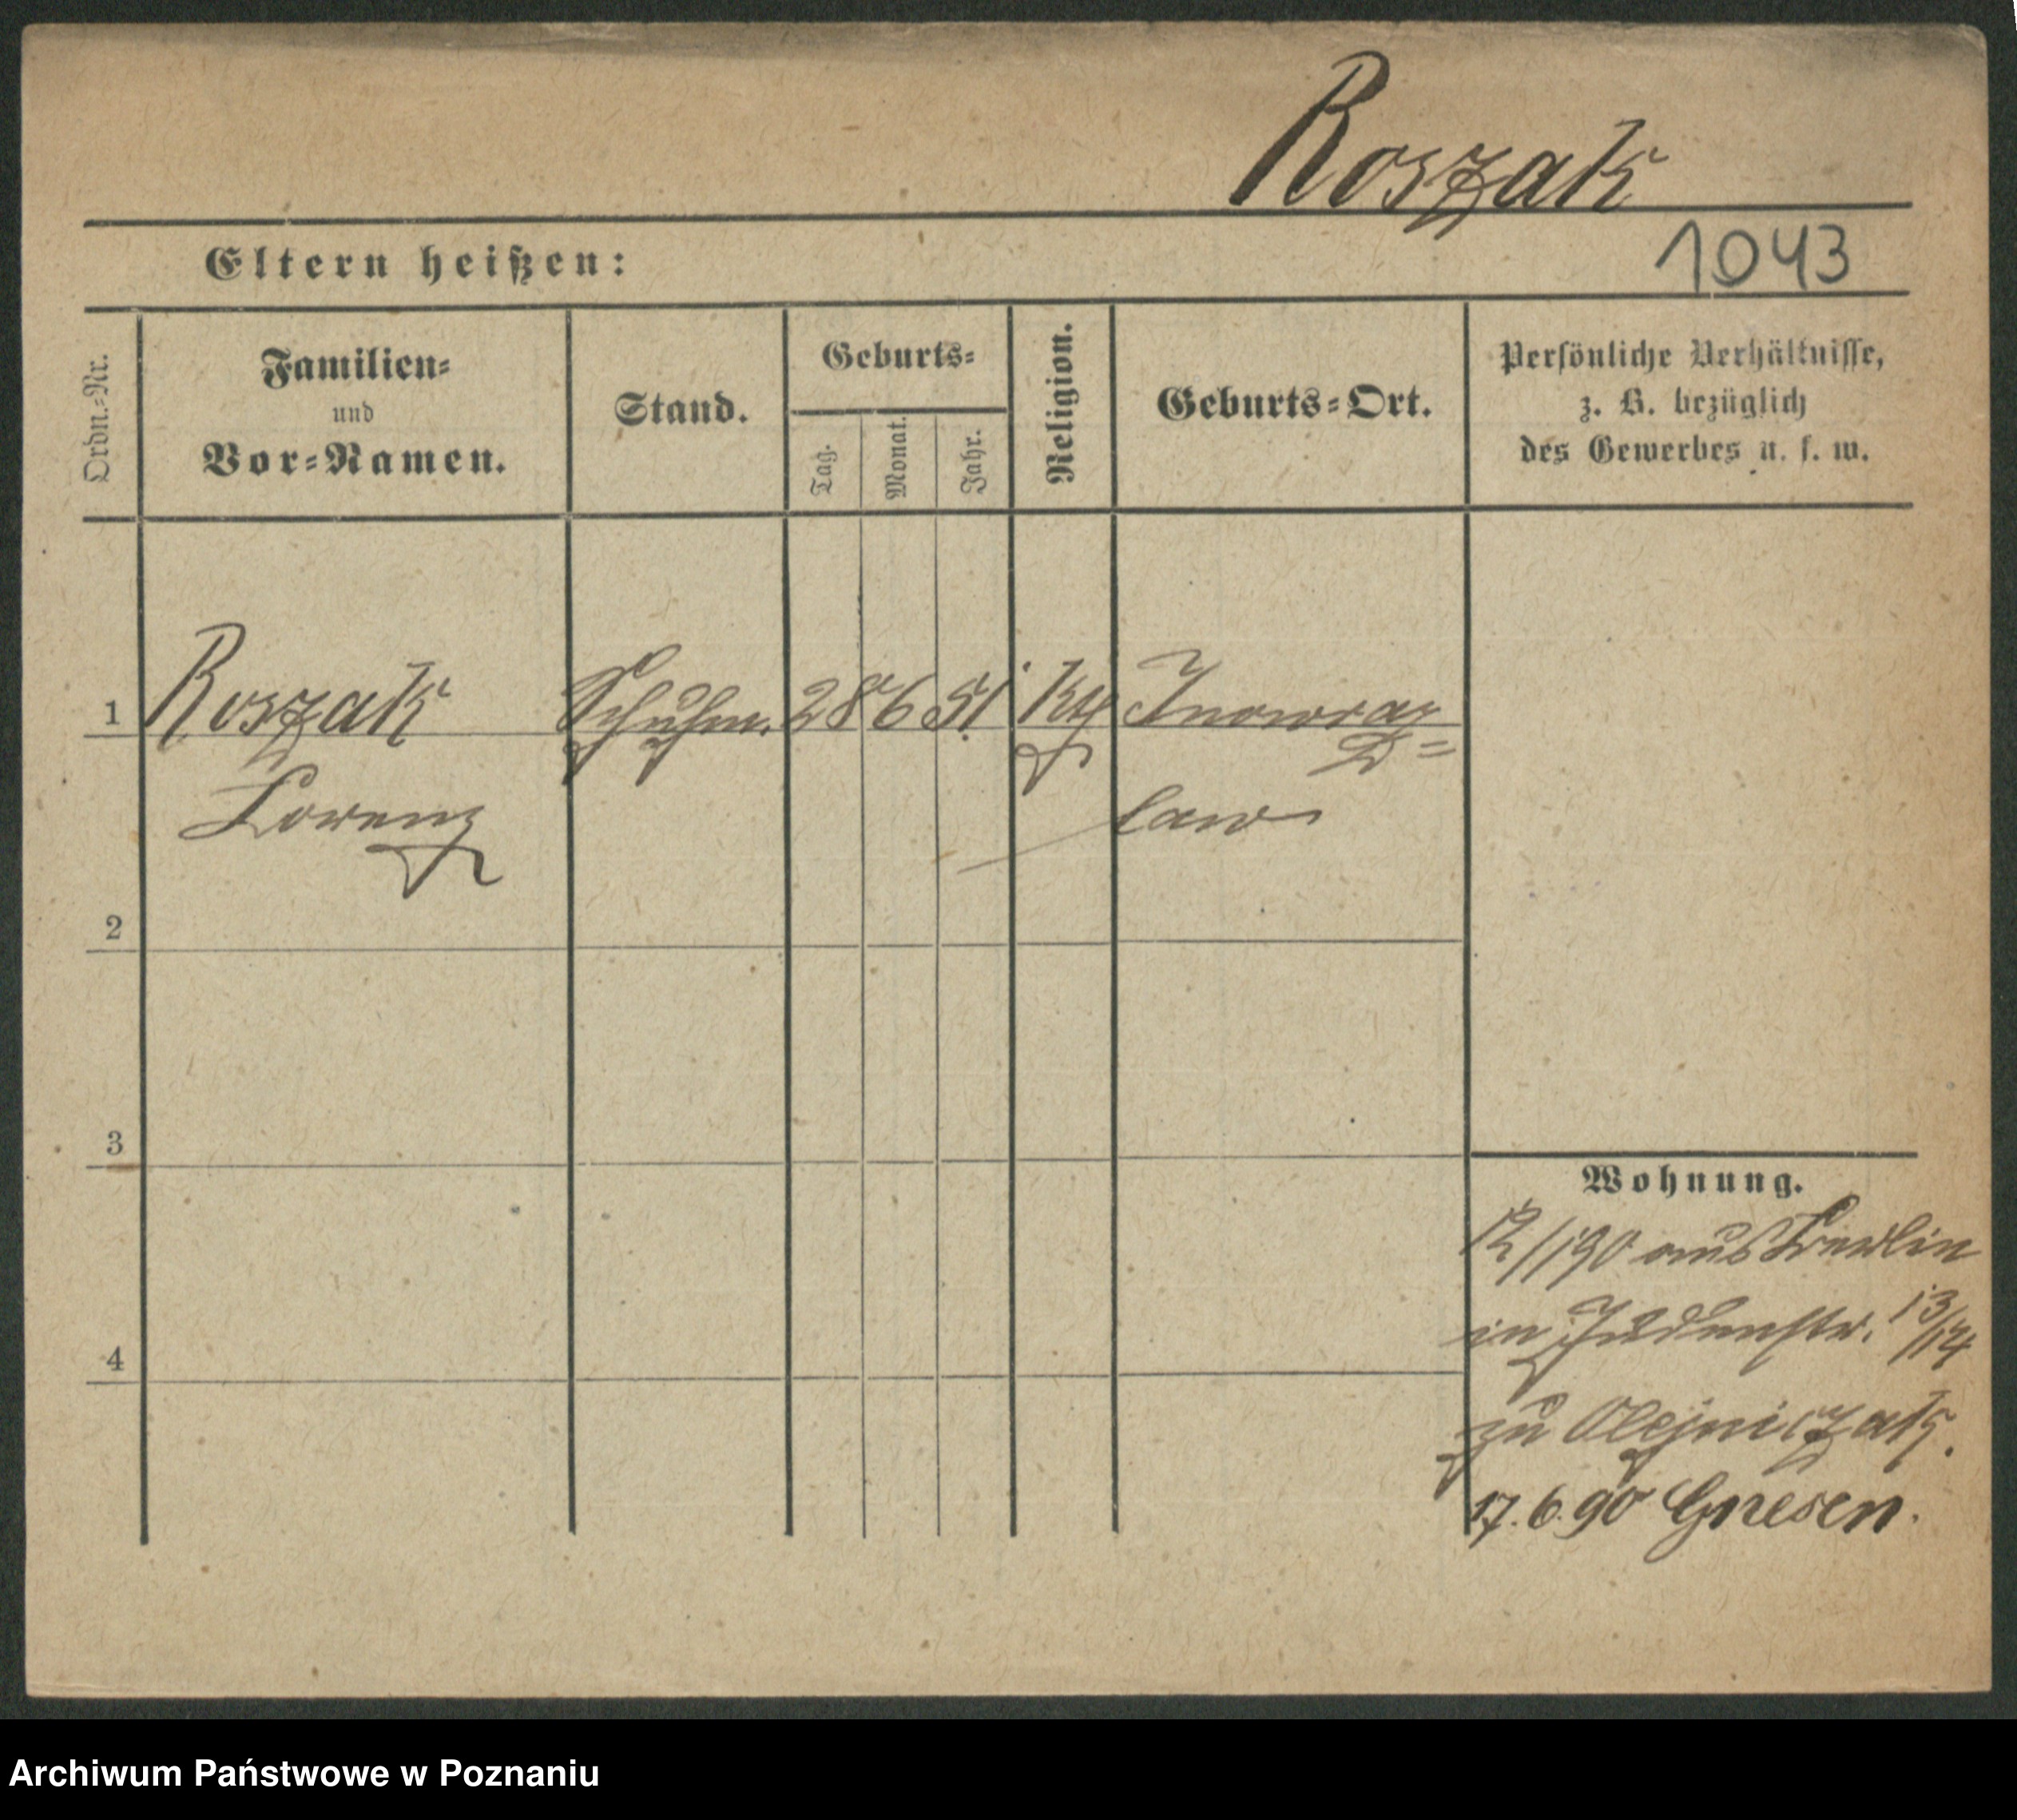 Roszak
1043
Eltern heißen:
Ordn.-Nr.
Familien-
und
Vor-Namen.
Stand.
Geburts-
Tag.
Monat.
Jahr.
Religion.
Geburts-Ort.
Persönliche Verhältnisse,
z. B. bezüglich
des Gewerbes u. s. w.
1 Roszak Schuhm. 28 6 51 kth Inowraz-
Lorenz law
2
3
4
Wohnung.
12/1 90 aus Berlin
in Judenstr. 13/14
zu Olejniczak.
17.6.90 Gnesen.
Archiwum Państwowe w Poznaniu